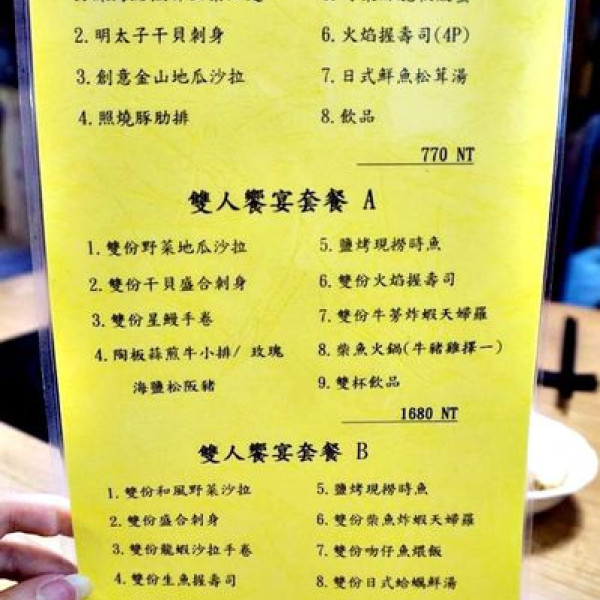 2. 明太子干貝刺身
3. 創意金山地瓜沙拉
4. 照燒豚肋排
6. 火焰握壽司(4P)
7. 日式鮮魚松茸湯
8. 飲品
770 NT
雙人饗宴套餐 A
1. 雙份野菜地瓜沙拉
2. 雙份干貝盛合刺身
3. 雙份星鰻手卷
4. 陶板蒜煎牛小排/ 玫瑰
海鹽松阪豬
5. 鹽烤現撈時魚
6. 雙份火焰握壽司
7. 雙份牛蒡炸蝦天婦羅
8. 柴魚火鍋(牛豬雞擇一)
9. 雙杯飲品
1680 NT
雙人饗宴套餐 B
1. 雙份和風野菜沙拉
2. 雙份盛合刺身
3. 雙份龍蝦沙拉手卷
4. 雙份生魚握壽司
5. 鹽烤現撈時魚
6. 雙份柴魚炸蝦天婦羅
7. 雙份吻仔魚煨飯
8. 雙份日式蛤蠣鮮湯